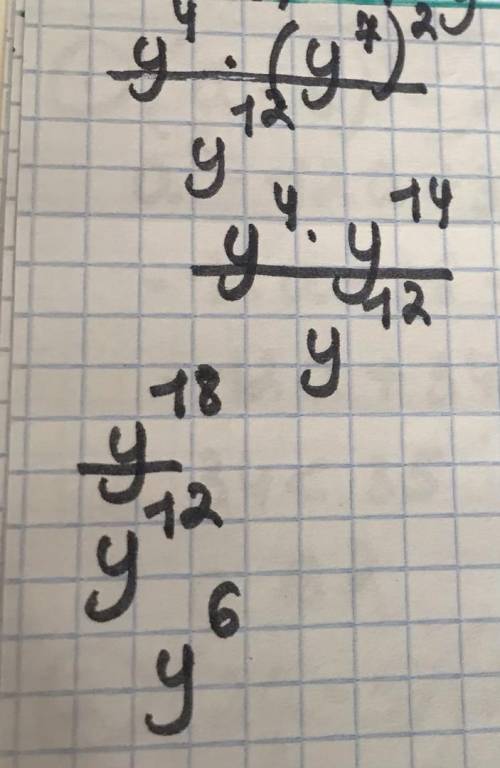 y⁴ · (y⁷)² / y¹²
y⁴ · y¹⁴ / y¹²
y¹⁸ / y¹²
y⁶